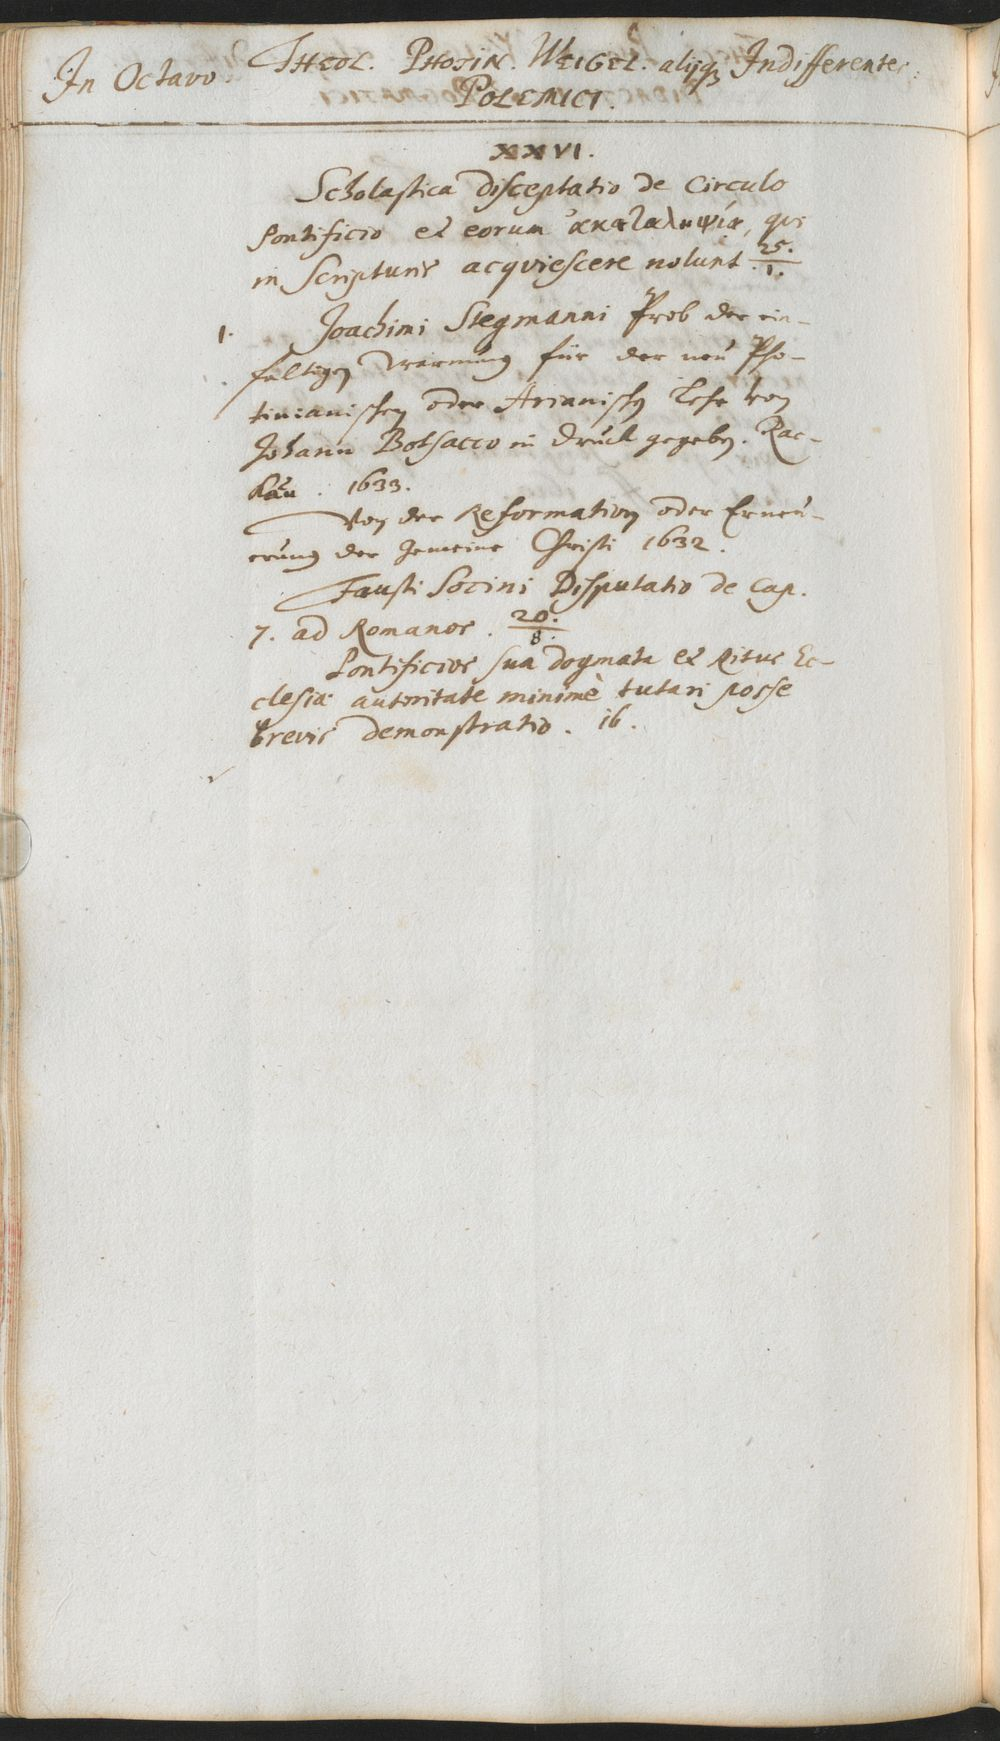 In Octavo. THEOL. PHOTIN. WEIGEL. alijq; Indifferentes.
POLEMICI.
XXVI.
Scholastica disceptatio de Circulo
Pontificio et eorum ἀκαταληψίᾳ, qvi
in Scripturis acqviescere nolunt. 25./1.
1. Joachimi Stegmanni Prob der ein-
fältigen warnung für der neü Pho-
tinianischen oder Arianischen Lehr von
Johann Botsacco in Druck gegeben. Rac-
kau. 1633.
Von der Reformation oder Erneü-
erung der Gemeine Christi 1632.
Fausti Socini Disputatio de Cap.
7. ad Romanos. 20./8.
Pontificios sua dogmata et Ritus Ec-
clesiæ autoritate minimè tutari posse
brevis demonstratio. ib.